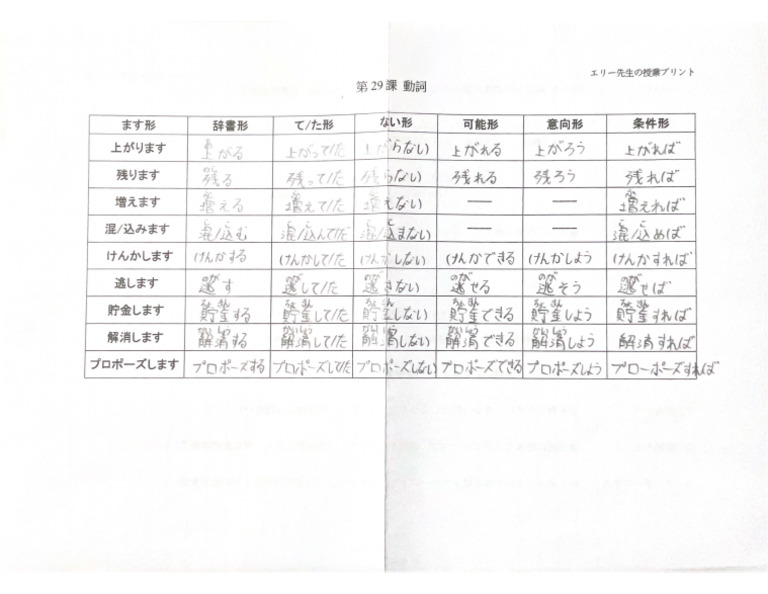 エリー先生の授業プリント
第29課 動詞
ます形 辞書形 て/た形 ない形 可能形 意向形 条件形
上がります 上がる 上がって/た 上がらない 上がれる 上がろう 上がれば
残ります 残る 残って/た 残らない 残れる 残ろう 残れば
増えます 増える 増えて/た 増えない ― ― 増えれば
混/込みます 混/込む 混/込んで/だ 混/込まない ― ― 混/込めば
けんかします けんかする けんかして/た けんかしない けんかできる けんかしよう けんかすれば
逃します 逃す 逃して/た 逃さない 逃せる 逃そう 逃せば
貯金します 貯金する 貯金して/た 貯金しない 貯金できる 貯金しよう 貯金すれば
解消します 解消する 解消して/た 解消しない 解消できる 解消しよう 解消すれば
プロポーズします プロポーズする プロポーズして/た プロポーズしない プロポーズできる プロポーズしよう プローポーズすれば